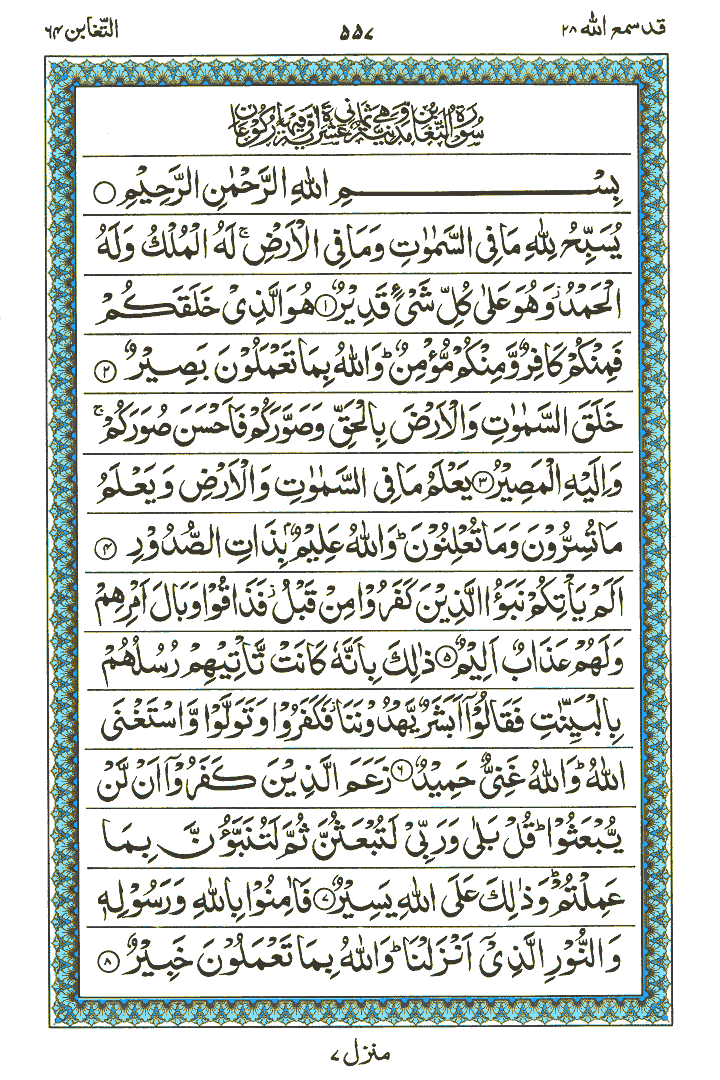 قد سمع الله ۲۸
۵۵۷
التّغابن ۶۴
سُوْرَةُ التَّغَابُنِ مَدَنِيَّةٌ وَّهِيَ ثَمَانِيَ عَشْرَةَ اٰيَةً وَّفِيْهَا رُكُوْعَانِ
بِسْمِ اللهِ الرَّحْمٰنِ الرَّحِيْمِ ○
يُسَبِّحُ لِلّٰهِ مَا فِى السَّمٰوٰتِ وَمَا فِى الْاَرْضِ ۚ لَهُ الْمُلْكُ وَلَهُ
الْحَمْدُ ۫ وَهُوَ عَلٰى كُلِّ شَىْءٍ قَدِيْرٌ ۱ هُوَ الَّذِىْ خَلَقَكُمْ
فَمِنْكُمْ كَافِرٌ وَّمِنْكُمْ مُّؤْمِنٌ ؕ وَاللهُ بِمَا تَعْمَلُوْنَ بَصِيْرٌ ۲
خَلَقَ السَّمٰوٰتِ وَالْاَرْضَ بِالْحَقِّ وَصَوَّرَكُمْ فَاَحْسَنَ صُوَرَكُمْ ۚ
وَاِلَيْهِ الْمَصِيْرُ ۳ يَعْلَمُ مَا فِى السَّمٰوٰتِ وَالْاَرْضِ وَيَعْلَمُ
مَا تُسِرُّوْنَ وَمَا تُعْلِنُوْنَ ؕ وَاللهُ عَلِيْمٌۢ بِذَاتِ الصُّدُوْرِ ۴
اَلَمْ يَاْتِكُمْ نَبَؤُا الَّذِيْنَ كَفَرُوْا مِنْ قَبْلُ ۫ فَذَاقُوْا وَبَالَ اَمْرِهِمْ
وَلَهُمْ عَذَابٌ اَلِيْمٌ ۵ ذٰلِكَ بِاَنَّهٗ كَانَتْ تَّاْتِيْهِمْ رُسُلُهُمْ
بِالْبَيِّنٰتِ فَقَالُوْۤا اَبَشَرٌ يَّهْدُوْنَنَا ۫ فَكَفَرُوْا وَتَوَلَّوْا وَّاسْتَغْنَى
اللهُ ؕ وَاللهُ غَنِىٌّ حَمِيْدٌ ۶ زَعَمَ الَّذِيْنَ كَفَرُوْۤا اَنْ لَّنْ
يُّبْعَثُوْا ؕ قُلْ بَلٰى وَرَبِّىْ لَتُبْعَثُنَّ ثُمَّ لَتُنَبَّؤُنَّ بِمَا
عَمِلْتُمْ ؕ وَذٰلِكَ عَلَى اللهِ يَسِيْرٌ ۷ فَاٰمِنُوْا بِاللهِ وَرَسُوْلِهٖ
وَالنُّوْرِ الَّذِىْۤ اَنْزَلْنَا ؕ وَاللهُ بِمَا تَعْمَلُوْنَ خَبِيْرٌ ۸
منزل ۷